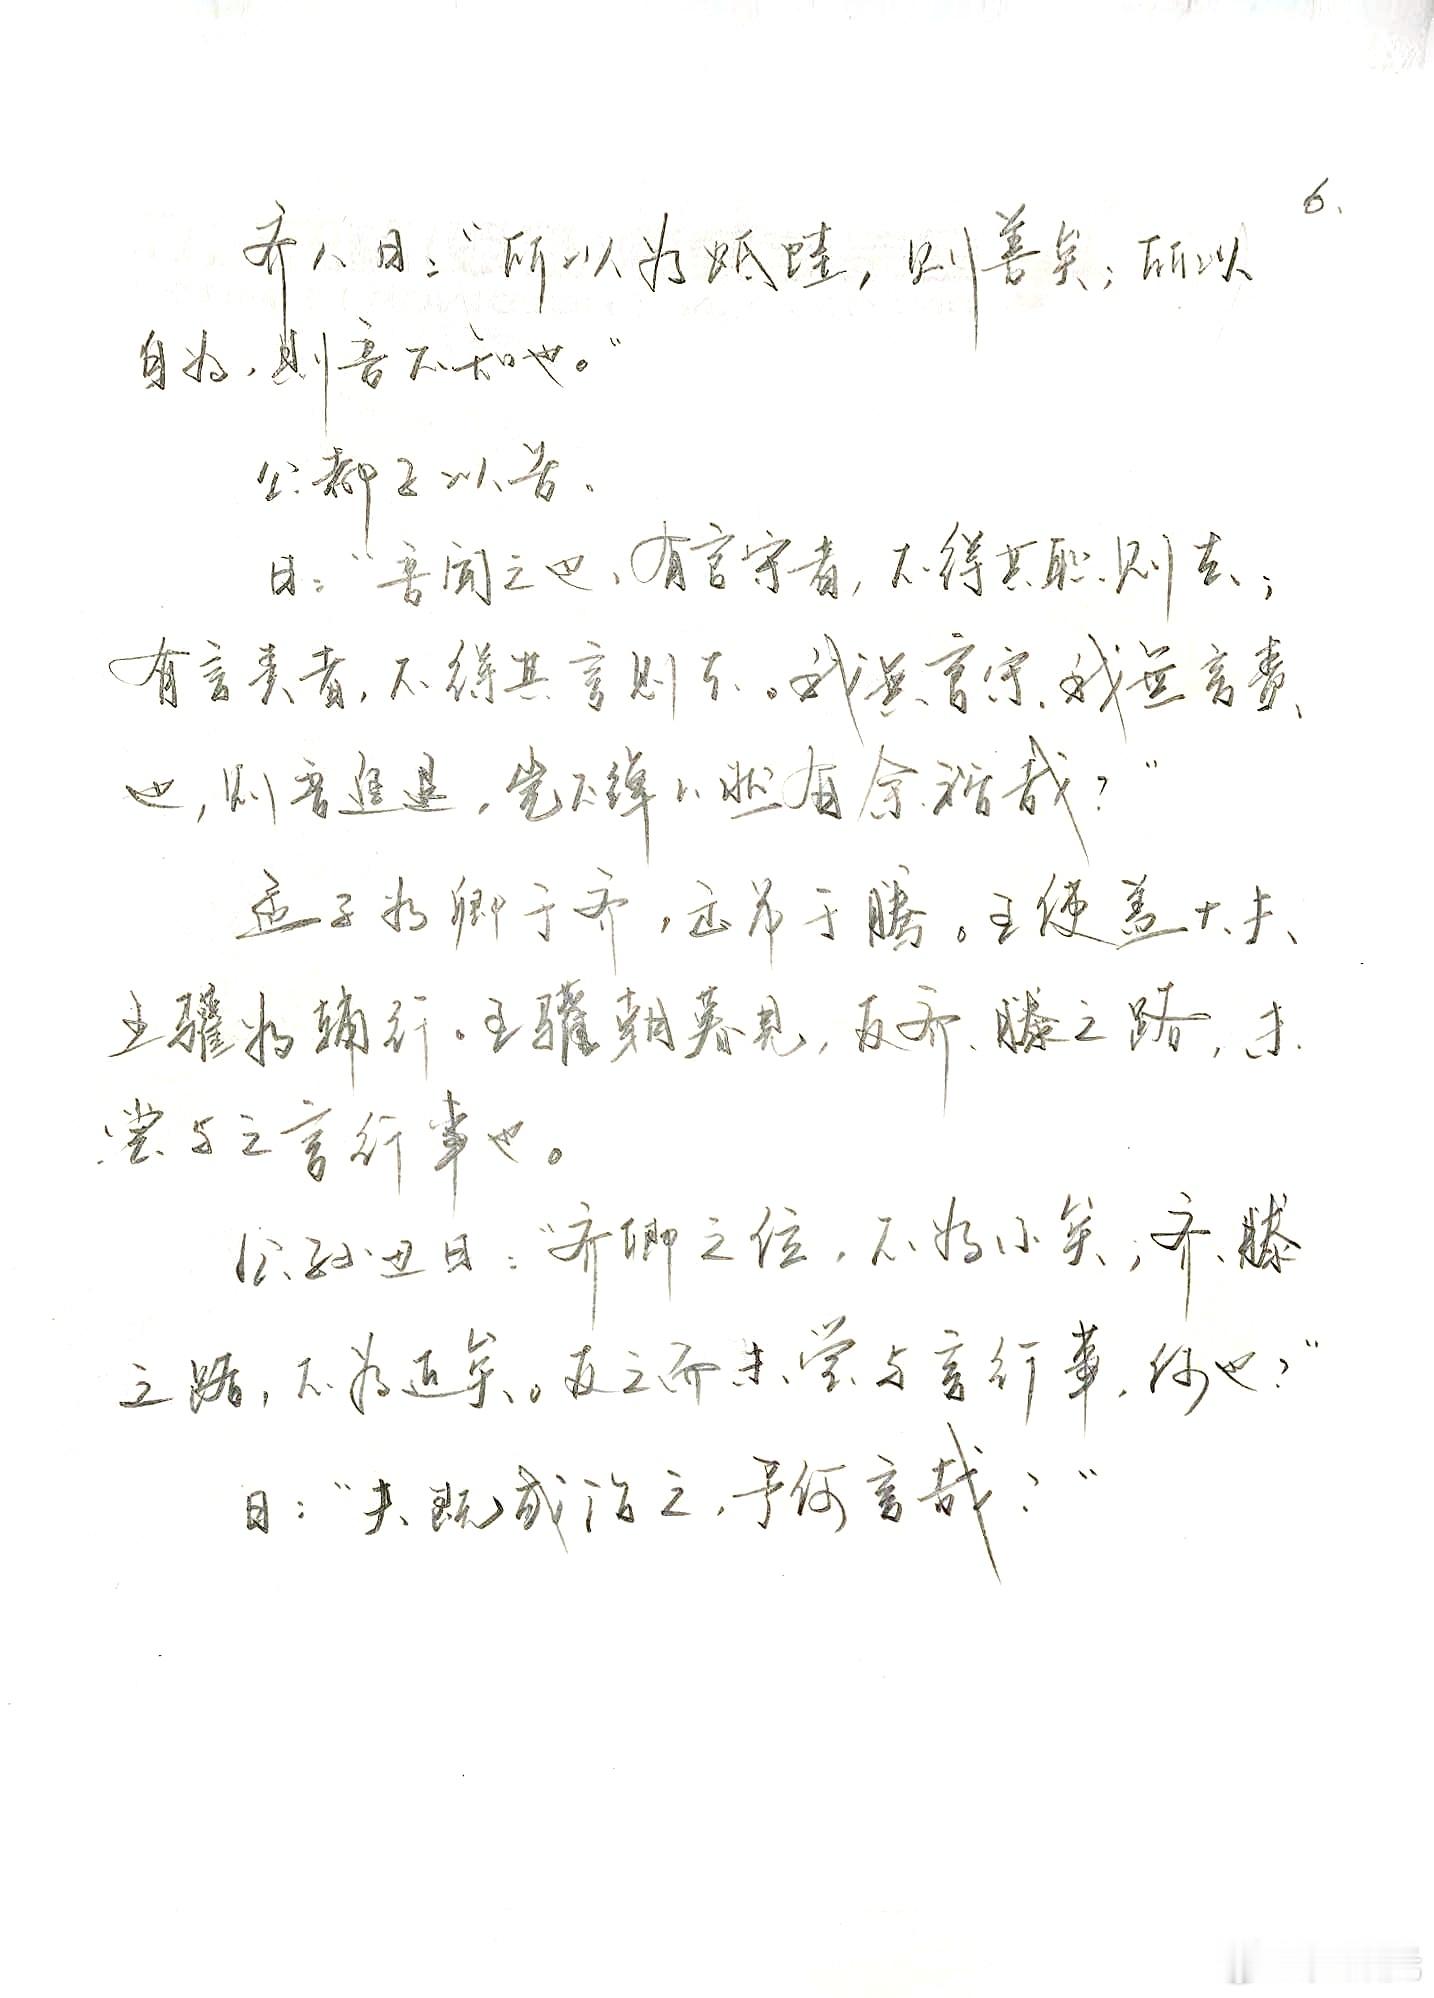 6.
齐人曰："所以为蚳蛙，则善矣；所以
自为，则吾不知也。"
公都子以告.
曰："吾闻之也、有官守者，不得其职则去；
有言责者，不得其言则去。我無官守.我無言責
也，则吾進退，岂不绰绰然有余裕哉？"
孟子为卿于齐，出吊于滕。王使盖大夫
王驩为辅行.王驩朝暮見，反齐、滕之路，未
尝与之言行事也。
公孙丑曰："齐卿之位，不为小矣；齐、滕
之路，不为近矣。反之而未尝与言行事，何也？"
曰："夫既或治之，予何言哉？"